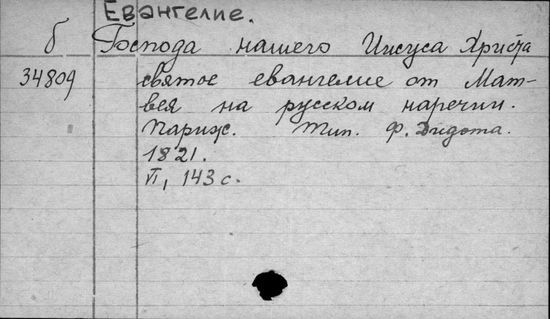 Евангелие.
б Господа нашего Иисуса Христа
34809 святое евангелие от Мат-
вея на русском наречии.
Париж. Тип. Ф. Дидота.
1821.
VI, 143 с.